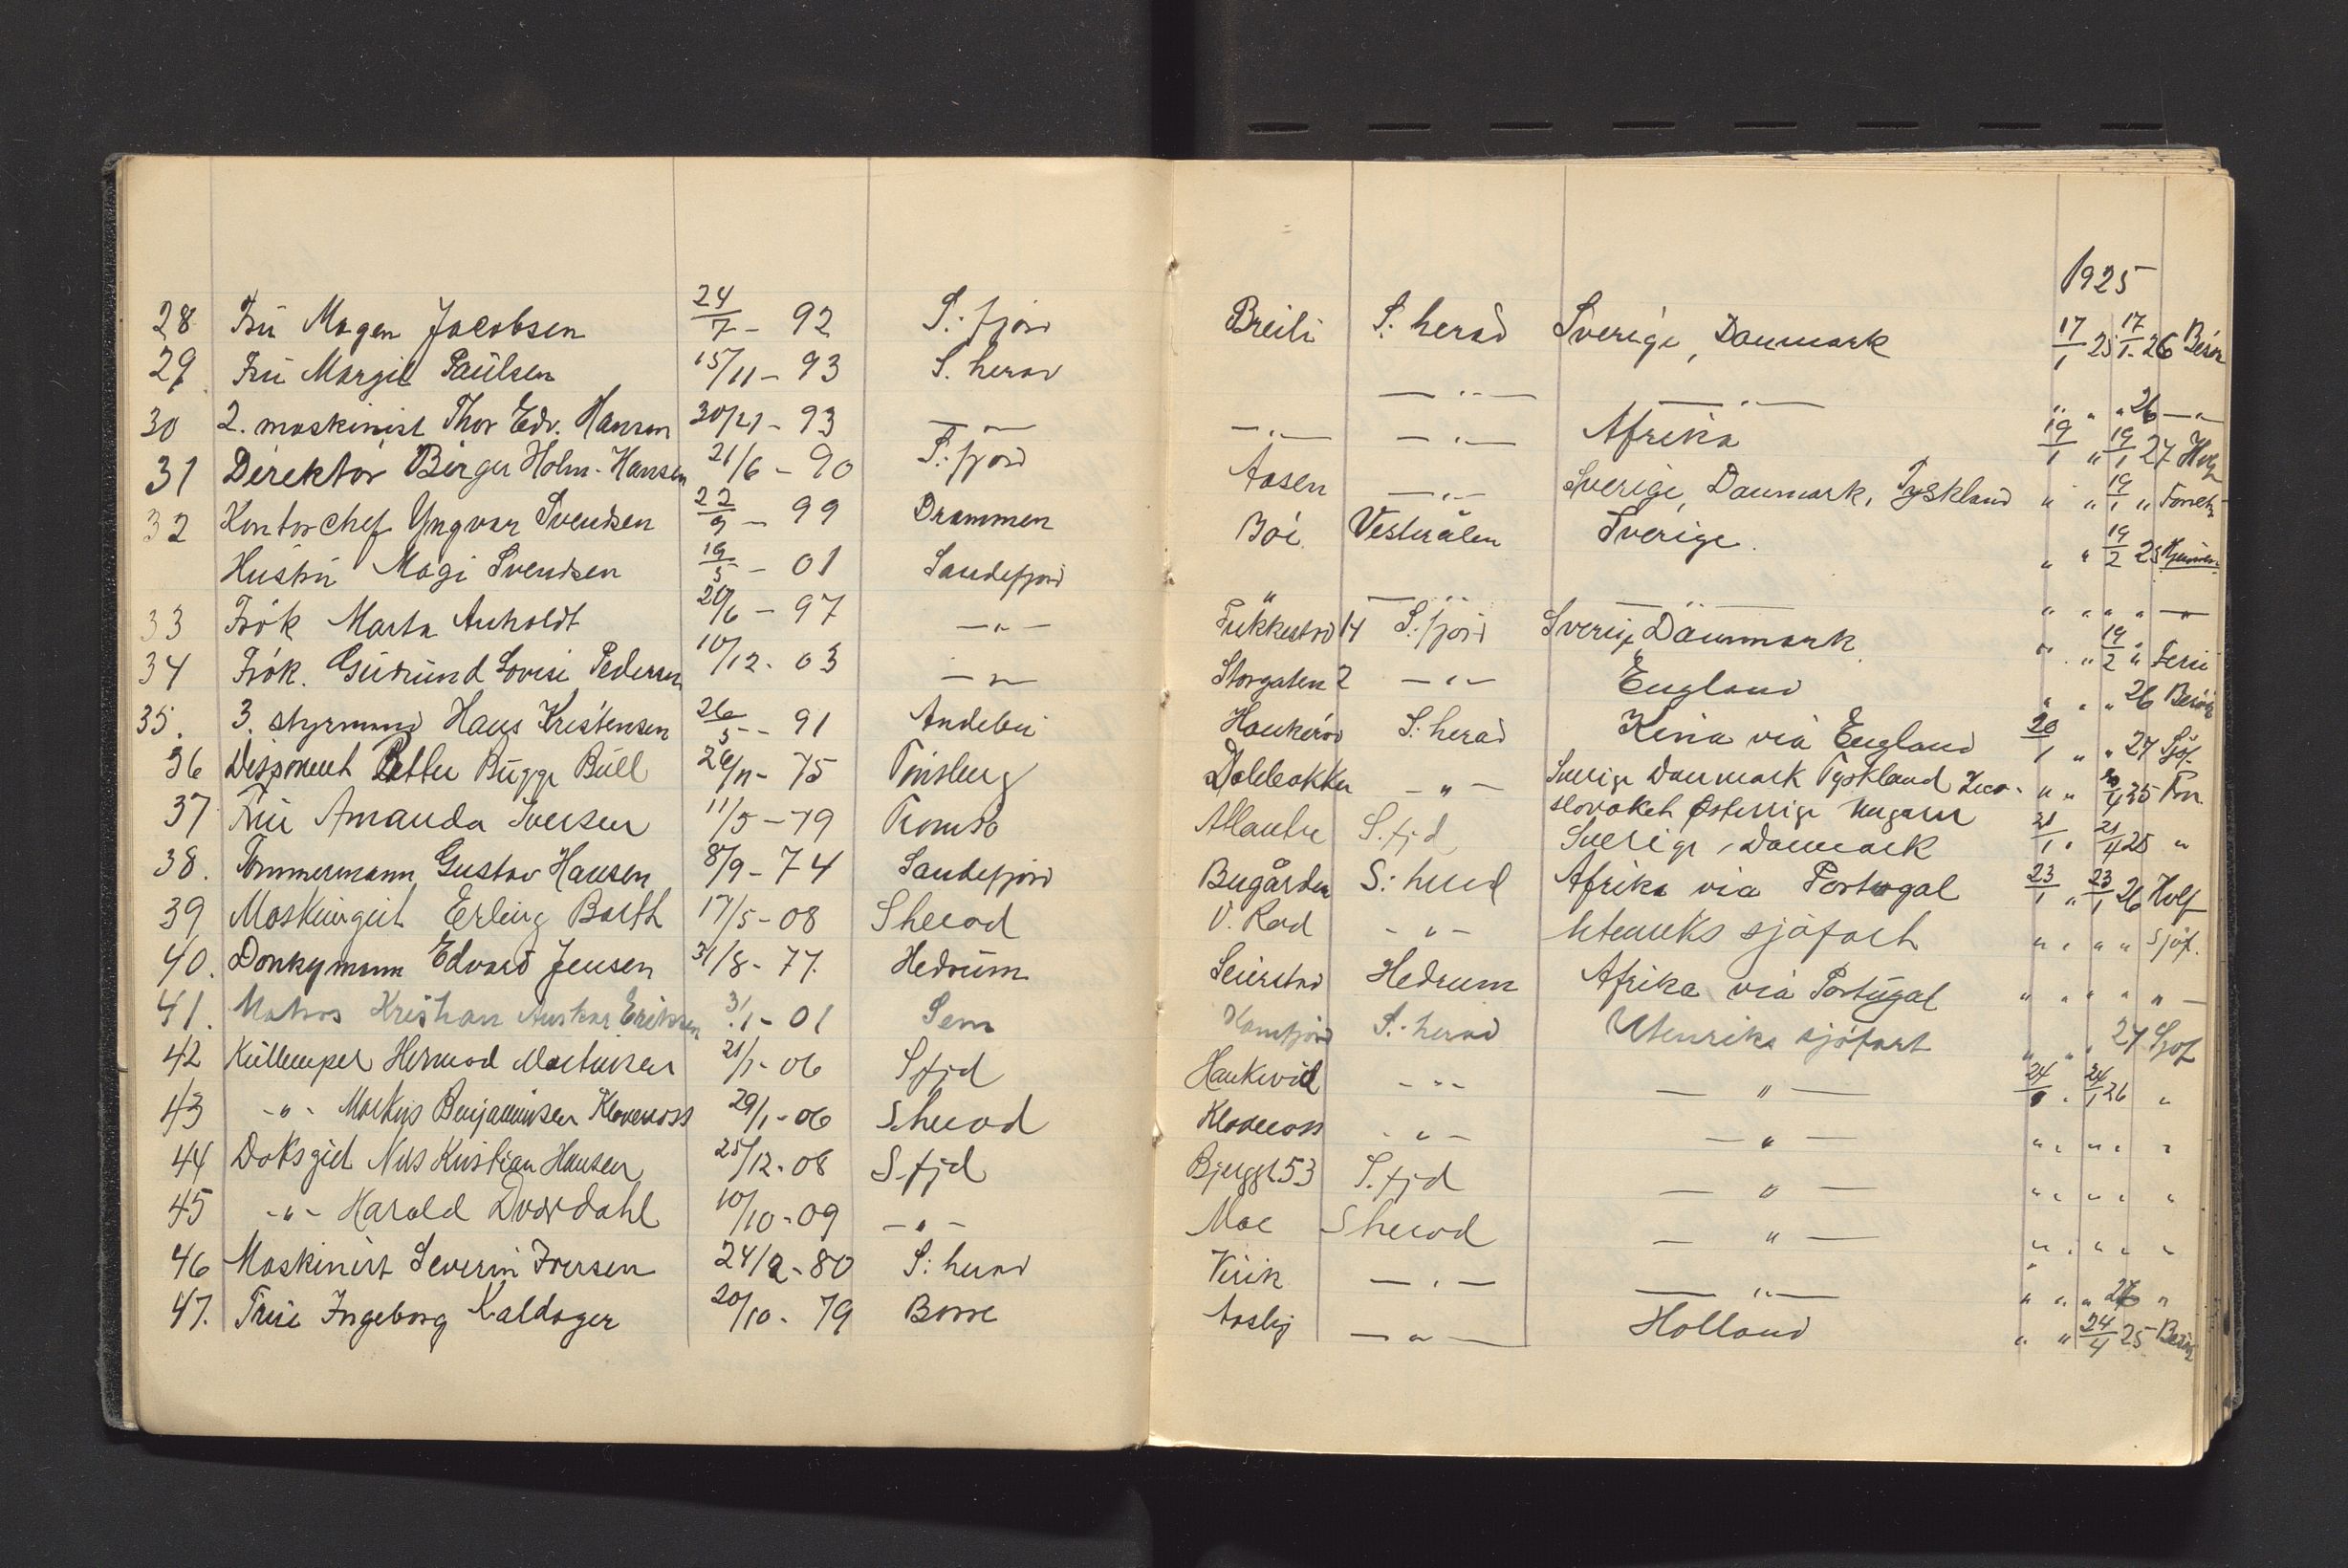 1925
28 Fru Magen Jacobsen 24/7 - 92 S: fjord Breili S: herad Sverige, Danmark 17/1 25 17/1- 26 Besøk
29 Fru Margit Paulsen 15/11 - 93 S. herad — " — — " — " " " 26 — " —
30 2. maskinist Thor Edv. Hansen 30/11 - 93 — " — — " — — " — Afrika 19/1 " 19/1 27 Hvlf
31 Direktør Birger Holm-Hansen 21/6 - 90 S: fjord Aasen — " — Sverige, Danmark, Tyskland " " 19/1 " Forretn
32 Kontorchef Yngvar Svendsen 22/9 - 99 Drammen Böi Vesterålen Sverige. " " 19/2 25 Hjemreise
Hustru Magi Svendsen 19/5 - 01 Sandefjord " — " — — " — " " " " — " —
33 Frøk Marta Anholdt 6 - 97 — " — 14 S: fjord Sverige Danmark " " 19/2 " Ferie
34 Frøk. Gudrund Lovise Pedersen 10/12 - 03 — " — Storgaten 2 — " — England " " " 26 Besøk
35. 3. styrmand Hans Kristensen 26/5 - 91 Andebu Haukerød S: herad Kina via England 20/1 " " 27 Sjøf.
36 Disponent Petter Bugge Bull 26/11 - 75 Tønsberg — " — Sverige Danmark Tyskland " " 20/4 25 Forr.
slovaket Østerrige Ungarn
37 Fru Amanda Iversen 11/5 - 79 Tromsø Atlantic S. fjd Sverige, Danmark 21/1 " 21/4 25 "
38. Tømmermann Gustav Hansen 8/9 - 74 Sandefjord Bugården S: herad Afrika via Portugal 23/1 " 23/1 26 Hvlf
39 Maskingut Erling Barth 17/5 - 08 S herad V. Rød - " - Utenriks sjøfart " " " " Sjøf.
40. Donkymann Edvard Jensen 31/8 - 77. Hedrum Seierstad Hedrum Afrika via Portugal " " " " " —
41. Matros Kristian Anskar Eriksen 3/1 - 01 Sem Kamfjord S: herad Utenriks sjøfart " " " 27 Sjøf
42 Kullemper Hermod Martinsen 21/1 - 06 S fjd Haukerød - " - — " — 24/1 " 24/1 26 "
43 - " - Markus Benjaminsen Klaveness 29/1 - 06 S herad Klaveness - " - — " — " " " " "
44 Doksgut Nils Kristian Hansen 25/12 - 08 S. fjd Bjerggt 53 S. fjd — " — " " " " "
45 - " - Harald Dverdahl 10/10 - 09 — " — Moe S herad — " — " " " " "
46 Maskinist Severin Iversen 24/2 - 80 S: herad Virik — " — — " — " " " 26 "
47. Frue Ingeborg Kaldager 20/10 - 79 Borre Aasly — " — Holland " " 24/4 25 Besøk